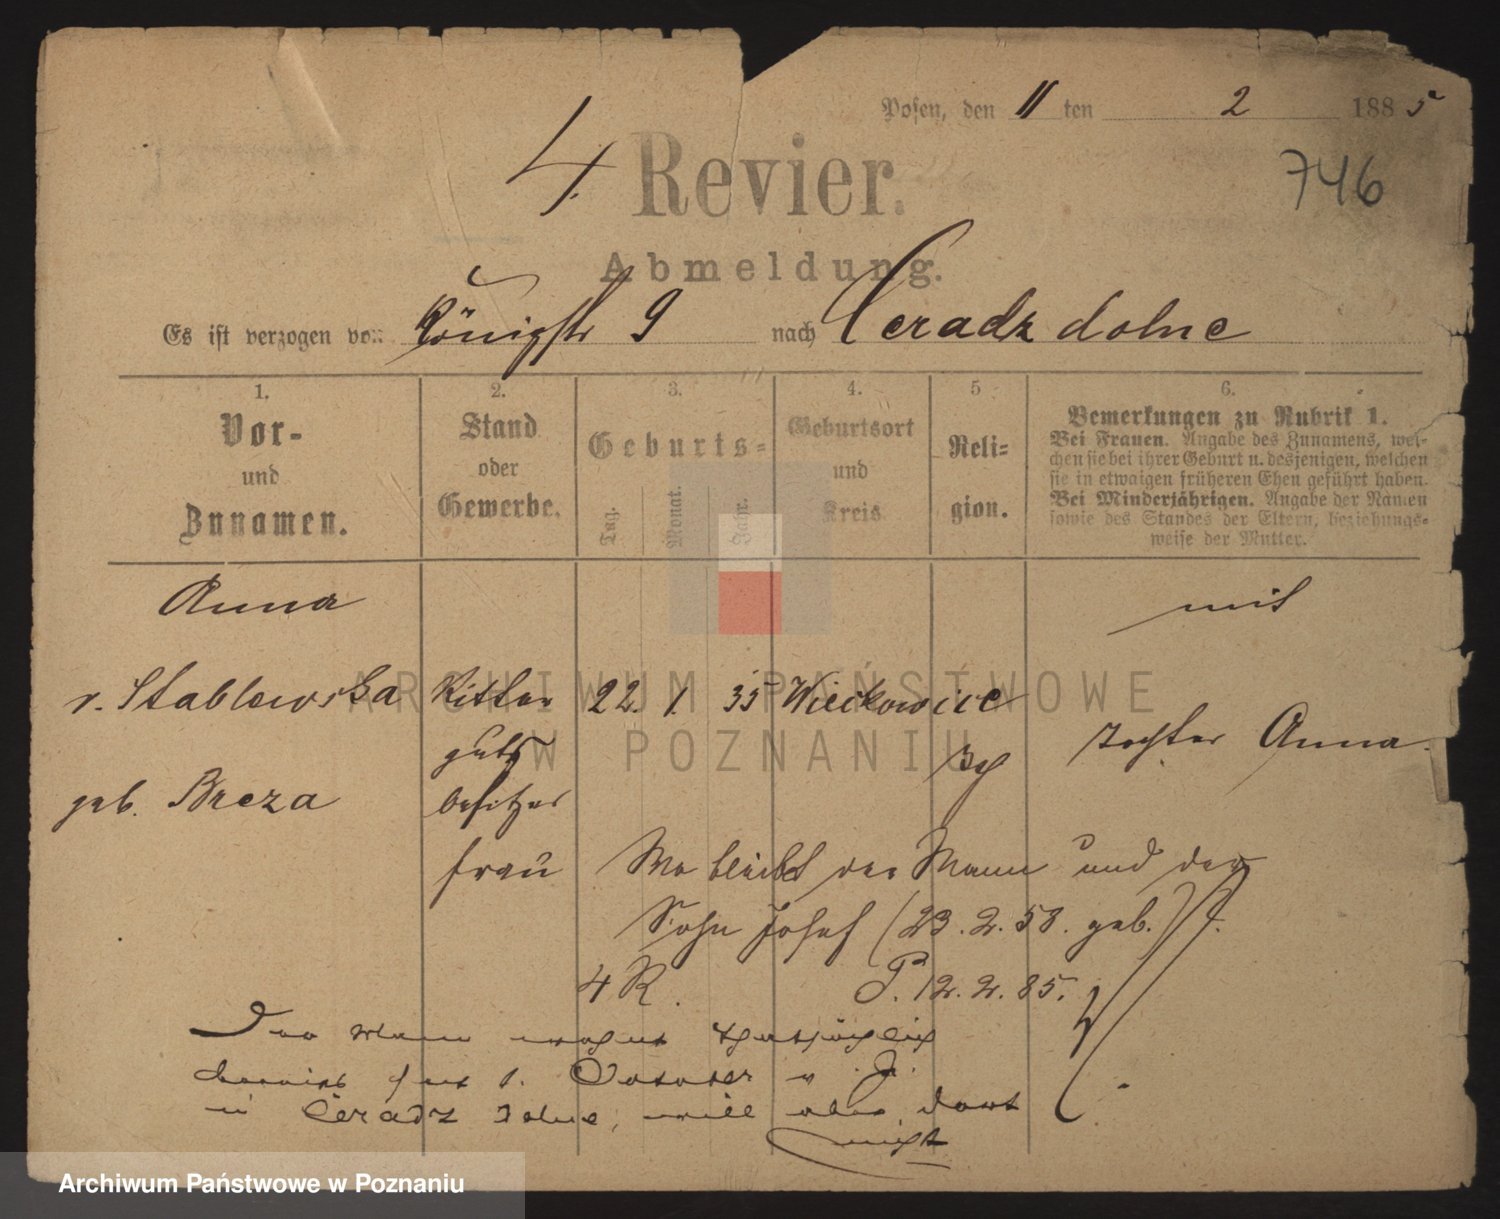 Posen, den 11 ten 2 1885
4. Revier.
746
Abmeldung.
Es ist verzogen von Königstr 9 nach Ceradz dolne
1. 2. 3. 4. 5 6.
Vor-
und
Zunamen.
Stand
oder
Gewerbe.
Geburts-
Tag. Monat. Jahr.
Geburtsort
und
Kreis
Reli-
gion.
Bemerkungen zu Rubrik 1.
Bei Frauen. Angabe des Zunamens, wel-
chen sie bei ihrer Geburt u. desjenigen, welchen
sie in etwaigen früheren Ehen geführt haben.
Bei Minderjährigen. Angabe der Namen
sowie des Standes der Eltern, beziehungs-
weise der Mutter.
Anna mit
v. Stablewska Ritter 22. 1. 35 Wieckowice
guts Tochter Anna.
geb. Breza besitzer
frau Wo bleibt der Mann und der
Sohn Josef (23. 2. 58. geb.)
4 R. P. 12. 2. 85.
Der Mann wohnt thatsächlich
bereits seit 1. October v. J.
in Ceradz dolne, will aber dort
nicht
ARCHIWUM PAŃSTWOWE
W POZNANIU
Archiwum Państwowe w Poznaniu